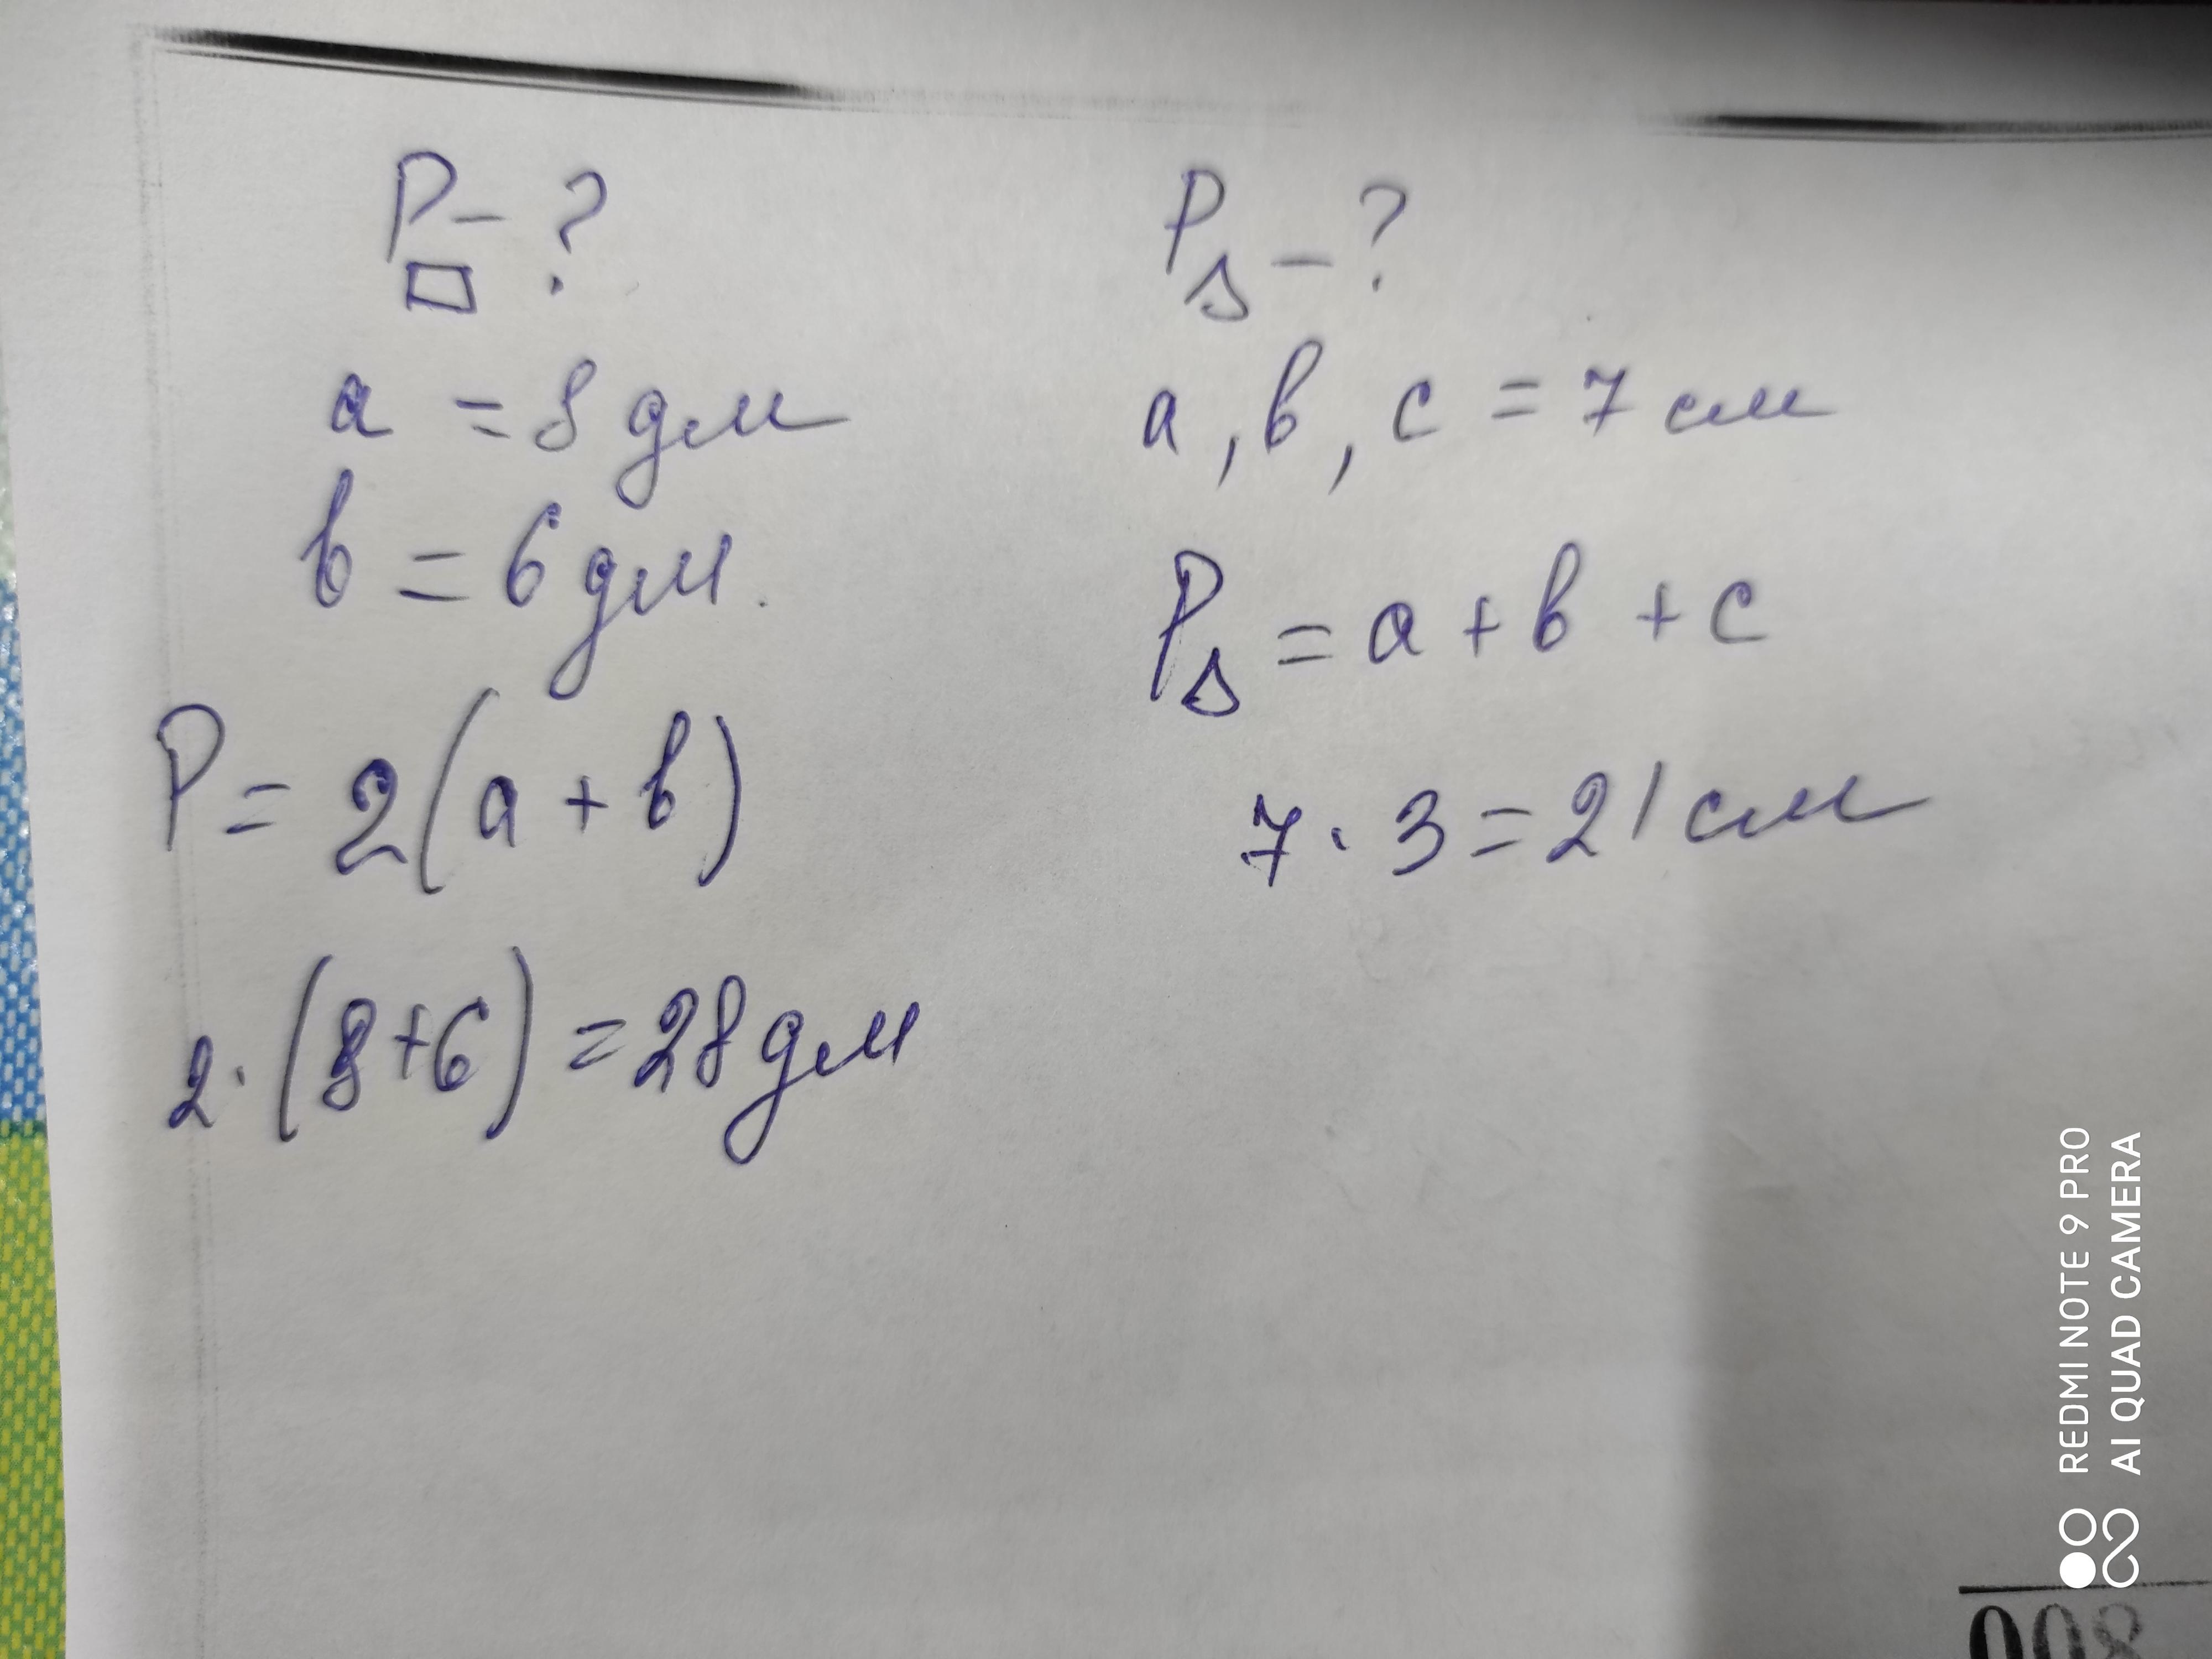 P▭ - ?
a = 8 дм
в = 6 дм.
P = 2(a + в)
2·(8+6) = 28 дм
P△ - ?
a, в, c = 7 см
P△ = a + в + c
7 · 3 = 21 см
REDMI NOTE 9 PRO
AI QUAD CAMERA
008